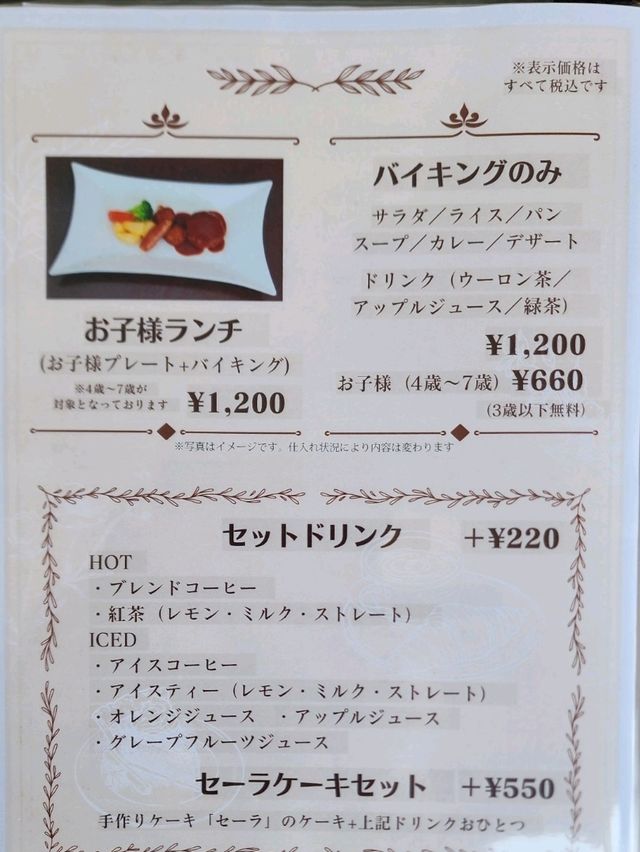 ※表示価格は
すべて税込です
お子様ランチ
(お子様プレート+バイキング)
※4歳〜7歳が
対象となっております
¥1,200
バイキングのみ
サラダ／ライス／パン
スープ／カレー／デザート
ドリンク（ウーロン茶／
アップルジュース／緑茶）
¥1,200
お子様（4歳〜7歳）¥660
(3歳以下無料)
※写真はイメージです。仕入れ状況により内容は変わります
セットドリンク +¥220
HOT
・ブレンドコーヒー
・紅茶（レモン・ミルク・ストレート）
ICED
・アイスコーヒー
・アイスティー（レモン・ミルク・ストレート）
・オレンジジュース ・アップルジュース
・グレープフルーツジュース
セーラケーキセット +¥550
手作りケーキ「セーラ」のケーキ+上記ドリンクおひとつ